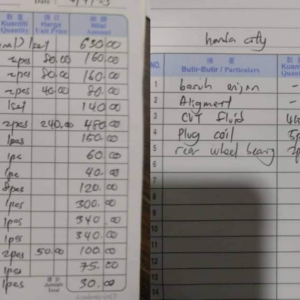 Date :
数量 單價 銀額
Kuantiti Harga Jumlah
Quantity Unit Price Amount
1 set 650.00
2pcs 80.00 160.00
2pcs 80.00 160.00
2pcs 40.00 80.00
1set 140.00
2pcs 240.00 480.00
1pcs 150.00
1pc 60.00
1pc 40.00
8pcs 120.00
1pcs 300.00
1pcs 340.00
1pcs 340.00
2pcs 50.00 100.00
1pcs 75.00
1pcs 30.00
Jumlah
Total
honda city
NO. Butir-Butir / Particulars
1 -
2 Aligment -
3 CVT fluid
4 Plug coil
5 rear wheel bearing
6
7
8
9
10
11
12
13
14